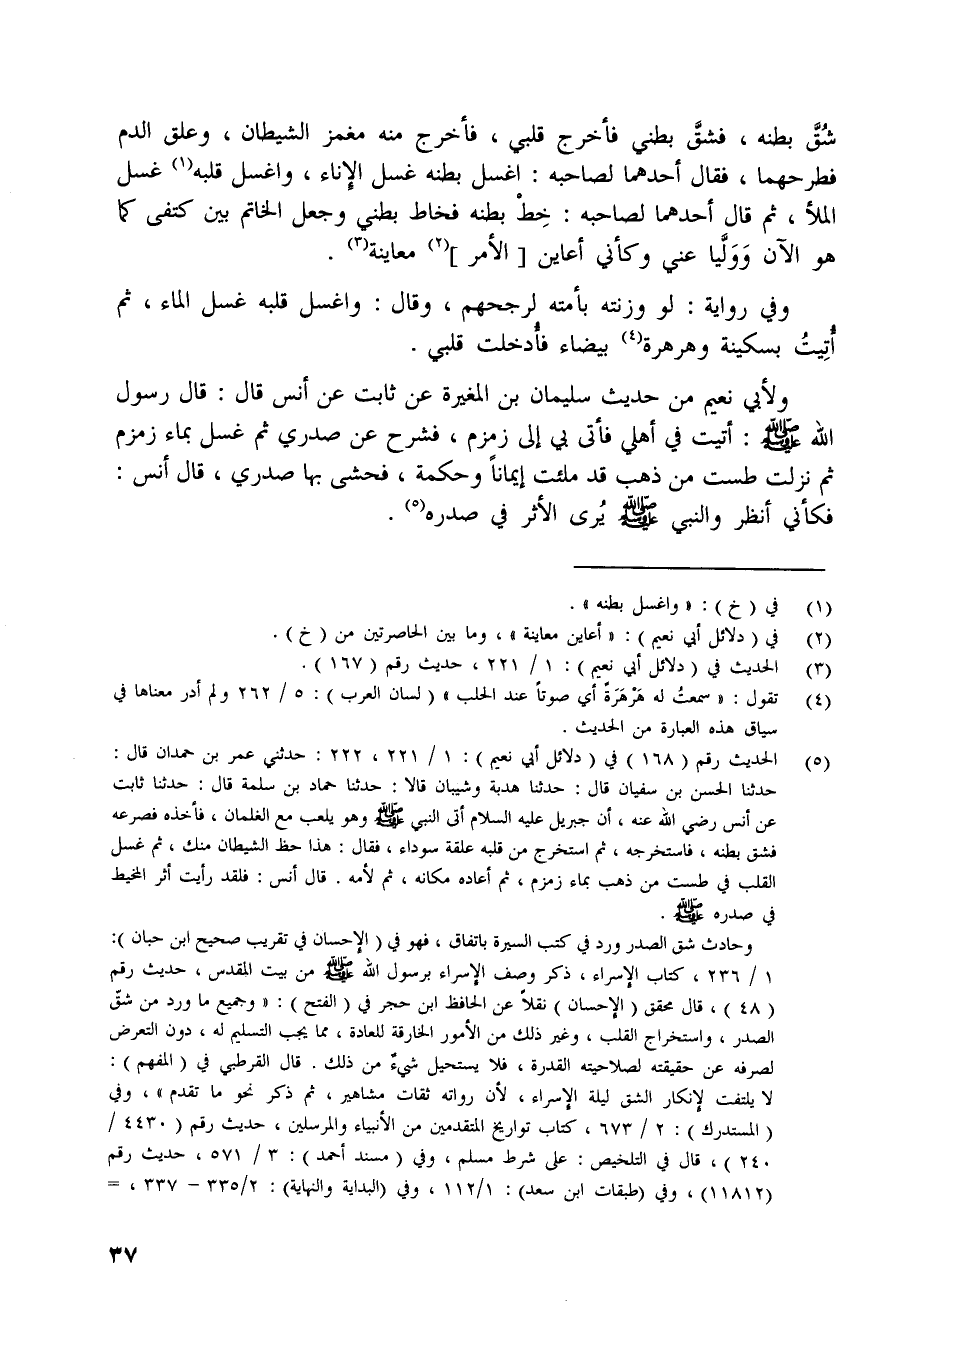 شُقَّ بطنه ، فشقَّ بطني فأخرج قلبي ، فأخرج منه مغمز الشيطان ، وعلق الدم
فطرحهما ، فقال أحدهما لصاحبه : اغسل بطنه غسل الإناء ، واغسل قلبه(١) غسل
الملأ ، ثم قال أحدهما لصاحبه : خِطْ بطنه فخاط بطني وجعل الخاتم بين كتفى كما
هو الآن وَوَلَّيا عني وكأني أعاين [ الأمر ](٢) معاينة(٣) .
وفي رواية : لو وزنته بأمته لرجحهم ، وقال : واغسل قلبه غسل الماء ، ثم
أُتِيتُ بسكينة وهرهرة(٤) بيضاء فأُدخلت قلبي .
ولأبي نعيم من حديث سليمان بن المغيرة عن ثابت عن أنس قال : قال رسول
الله ﷺ : أتيت في أهلي فأتى بي إلى زمزم ، فشرح عن صدري ثم غسل بماء زمزم
ثم نزلت طست من ذهب قد ملئت إيماناً وحكمة ، فحشى بها صدري ، قال أنس :
فكأني أنظر والنبي ﷺ يُرى الأثر في صدره(٥) .
(١) في ( خ ) : « واغسل بطنه » .
(٢) في ( دلائل أبي نعيم ) : « أعاين معاينة » ، وما بين الحاصرتين من ( خ ) .
(٣) الحديث في ( دلائل أبي نعيم ) : ١ / ٢٢١ ، حديث رقم ( ١٦٧ ) .
(٤) تقول : « سمعتُ له هَرْهَرَةً أي صوتاً عند الحلب » ( لسان العرب ) : ٥ / ٢٦٢ ولم أدر معناها في
سياق هذه العبارة من الحديث .
(٥) الحديث رقم ( ١٦٨ ) في ( دلائل أبي نعيم ) : ١ / ٢٢١ ، ٢٢٢ : حدثني عمر بن حمدان قال :
حدثنا الحسن بن سفيان قال : حدثنا هدبة وشيبان قالا : حدثنا حماد بن سلمة قال : حدثنا ثابت
عن أنس رضي الله عنه ، أن جبريل عليه السلام أتى النبي ﷺ وهو يلعب مع الغلمان ، فأخذه فصرعه
فشق بطنه ، فاستخرجه ، ثم استخرج من قلبه علقة سوداء ، فقال : هذا حظ الشيطان منك ، ثم غسل
القلب في طست من ذهب بماء زمزم ، ثم أعاده مكانه ، ثم لأمه . قال أنس : فلقد رأيت أثر المخيط
في صدره ﷺ .
وحادث شق الصدر ورد في كتب السيرة باتفاق ، فهو في ( الإحسان في تقريب صحيح ابن حبان ) :
١ / ٢٣٦ ، كتاب الإسراء ، ذكر وصف الإسراء برسول الله ﷺ من بيت المقدس ، حديث رقم
( ٤٨ ) ، قال محقق ( الإحسان ) نقلاً عن الحافظ ابن حجر في ( الفتح ) : « وجميع ما ورد من شقّ
الصدر ، واستخراج القلب ، وغير ذلك من الأمور الخارقة للعادة ، مما يجب التسليم له ، دون التعرض
لصرفه عن حقيقته لصلاحيته القدرة ، فلا يستحيل شيءٌ من ذلك . قال القرطبي في ( المفهم ) :
لا يلتفت لإنكار الشق ليلة الإسراء ، لأن رواته ثقات مشاهير ، ثم ذكر نحو ما تقدم » ، وفي
( المستدرك ) : ٢ / ٦٧٣ ، كتاب تواريخ المتقدمين من الأنبياء والمرسلين ، حديث رقم ( ٤٤٣٠ /
٢٤٠ ) ، قال في التلخيص : على شرط مسلم ، وفي ( مسند أحمد ) : ٣ / ٥٧١ ، حديث رقم
(١١٨١٢) ، وفي (طبقات ابن سعد) : ١/ ١١٢ ، وفي (البداية والنهاية) : ٢/ ٣٣٥ – ٣٣٧ ، =
٣٧